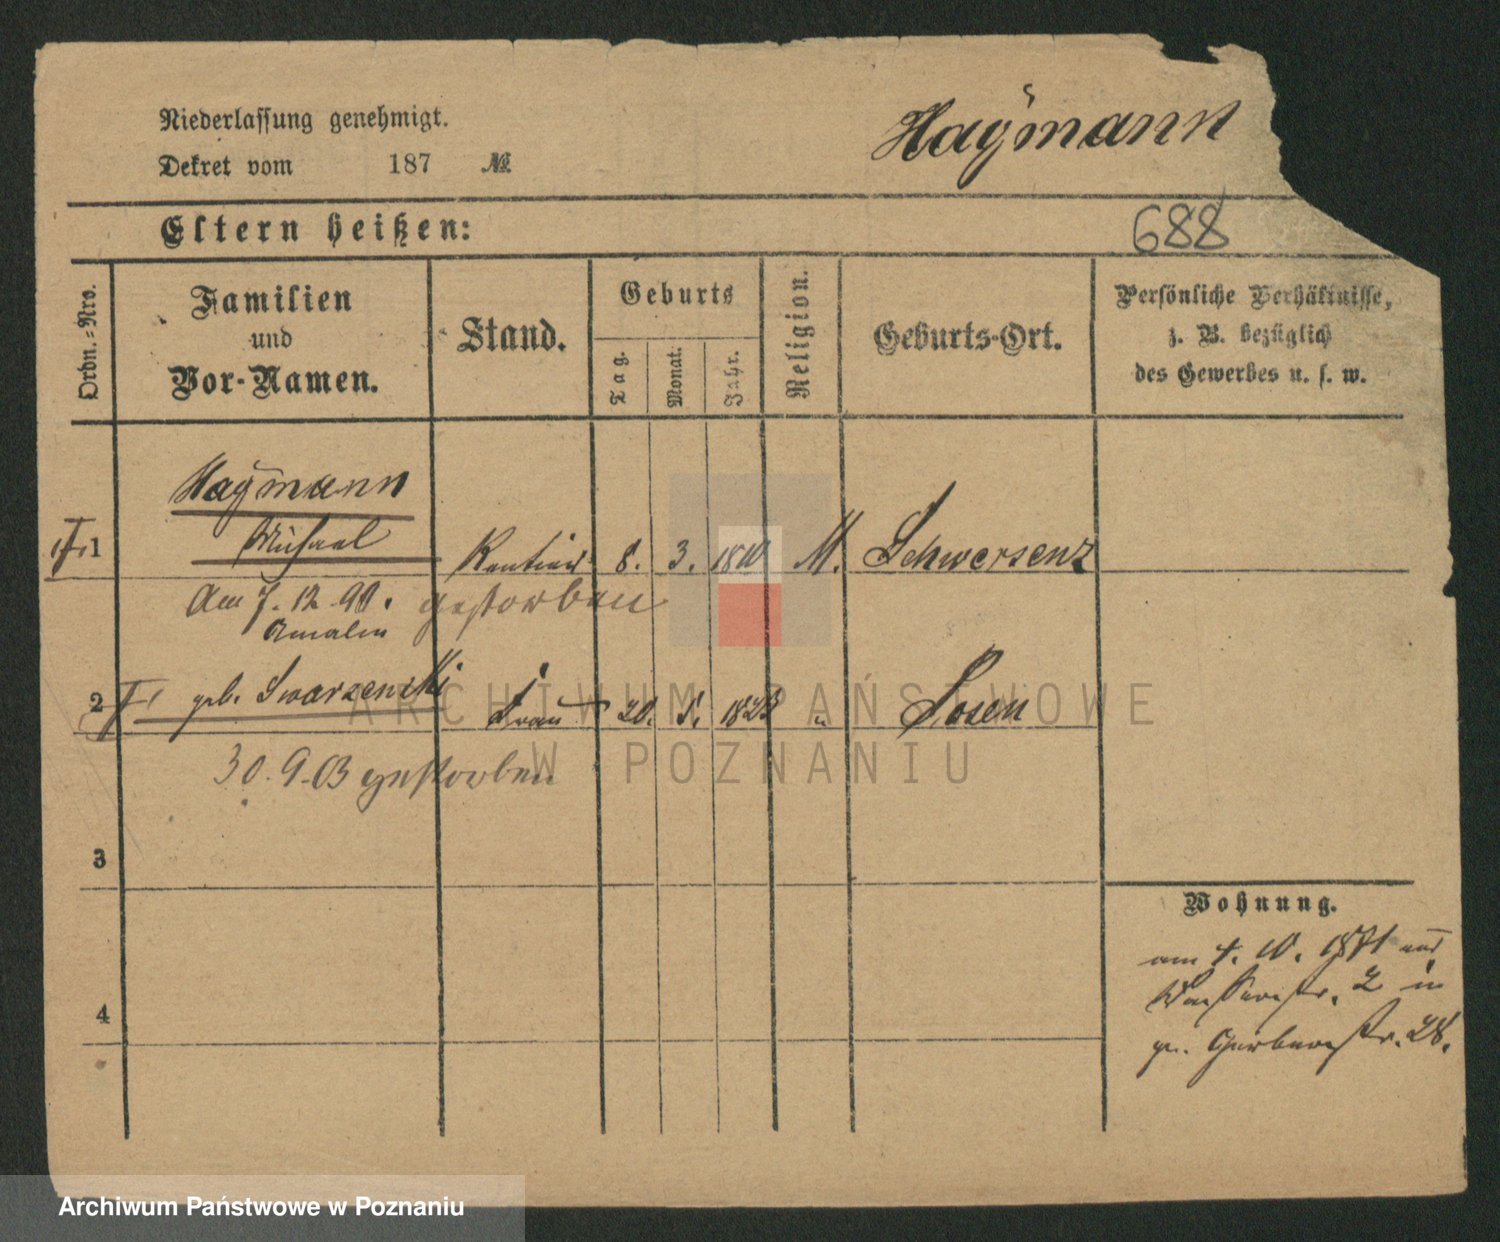 Niederlassung genehmigt.
Dekret vom 187 №
Haÿmann
Eltern heißen:
688
Ordn.-Nro.
Familien
und
Vor-Namen.
Stand.
Geburts
Tag.
Monat.
Jahr.
Religion.
Geburts-Ort.
Persönliche Verhältnisse,
z. B. bezüglich
des Gewerbes u. s. w.
Haÿmann
1 Michael Rentier 8. 3. 1810 M. Schwersenz
Am 7. 12. 90. gestorben
Amalie
2 geb. Swarzenski Frau 20. 5. 1823 " Posen
30. 9. 03 gestorben
3
4
Wohnung.
am 4. 10. 1871 aus
Wasserstr. 2 in
Gerberstr. 28.
ARCHIWUM PAŃSTWOWE
W POZNANIU
Archiwum Państwowe w Poznaniu